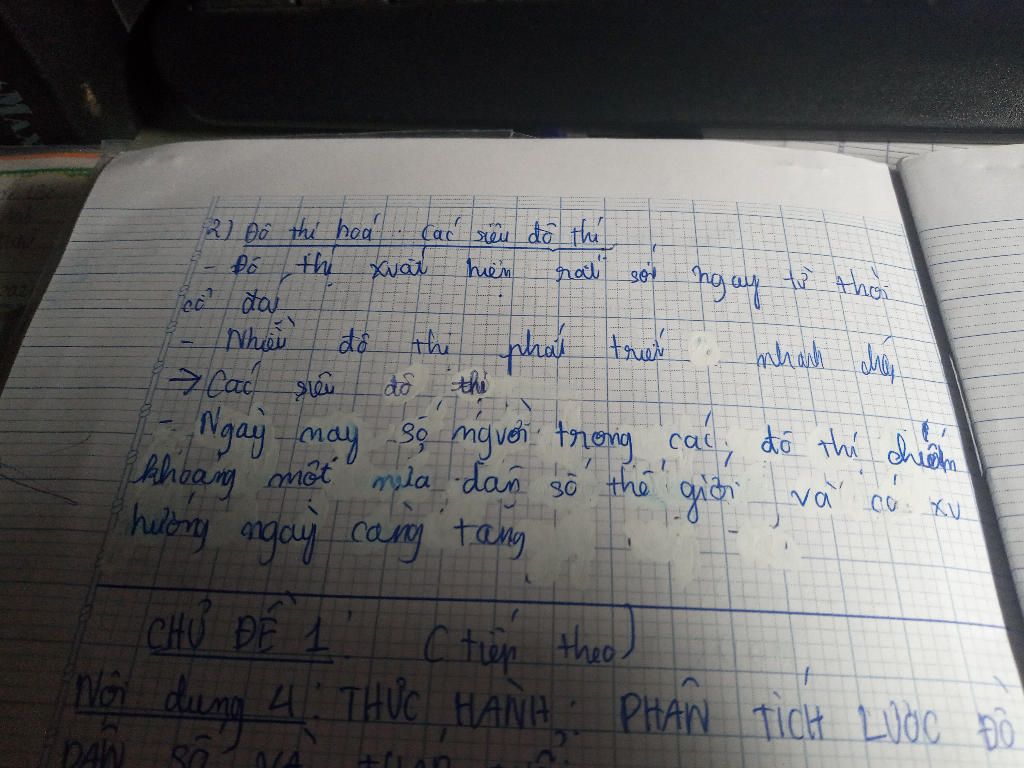 2) Đô thị hoá. các siêu đô thị
- Đô thị xuất hiện rất sớ ngay từ thời
cổ đại
- Nhiều đô thị phát triển nhanh
→ Các siêu đô thị
- Ngày nay số người trong các đô thị chiếm
khoảng một nửa dân số thế giới và có xu
hướng ngày càng tăng
CHỦ ĐỀ 1: (tiếp theo)
Nội dung 4: THỰC HÀNH: PHÂN TÍCH LƯỢC ĐỒ
DÂN SỐ VÀ